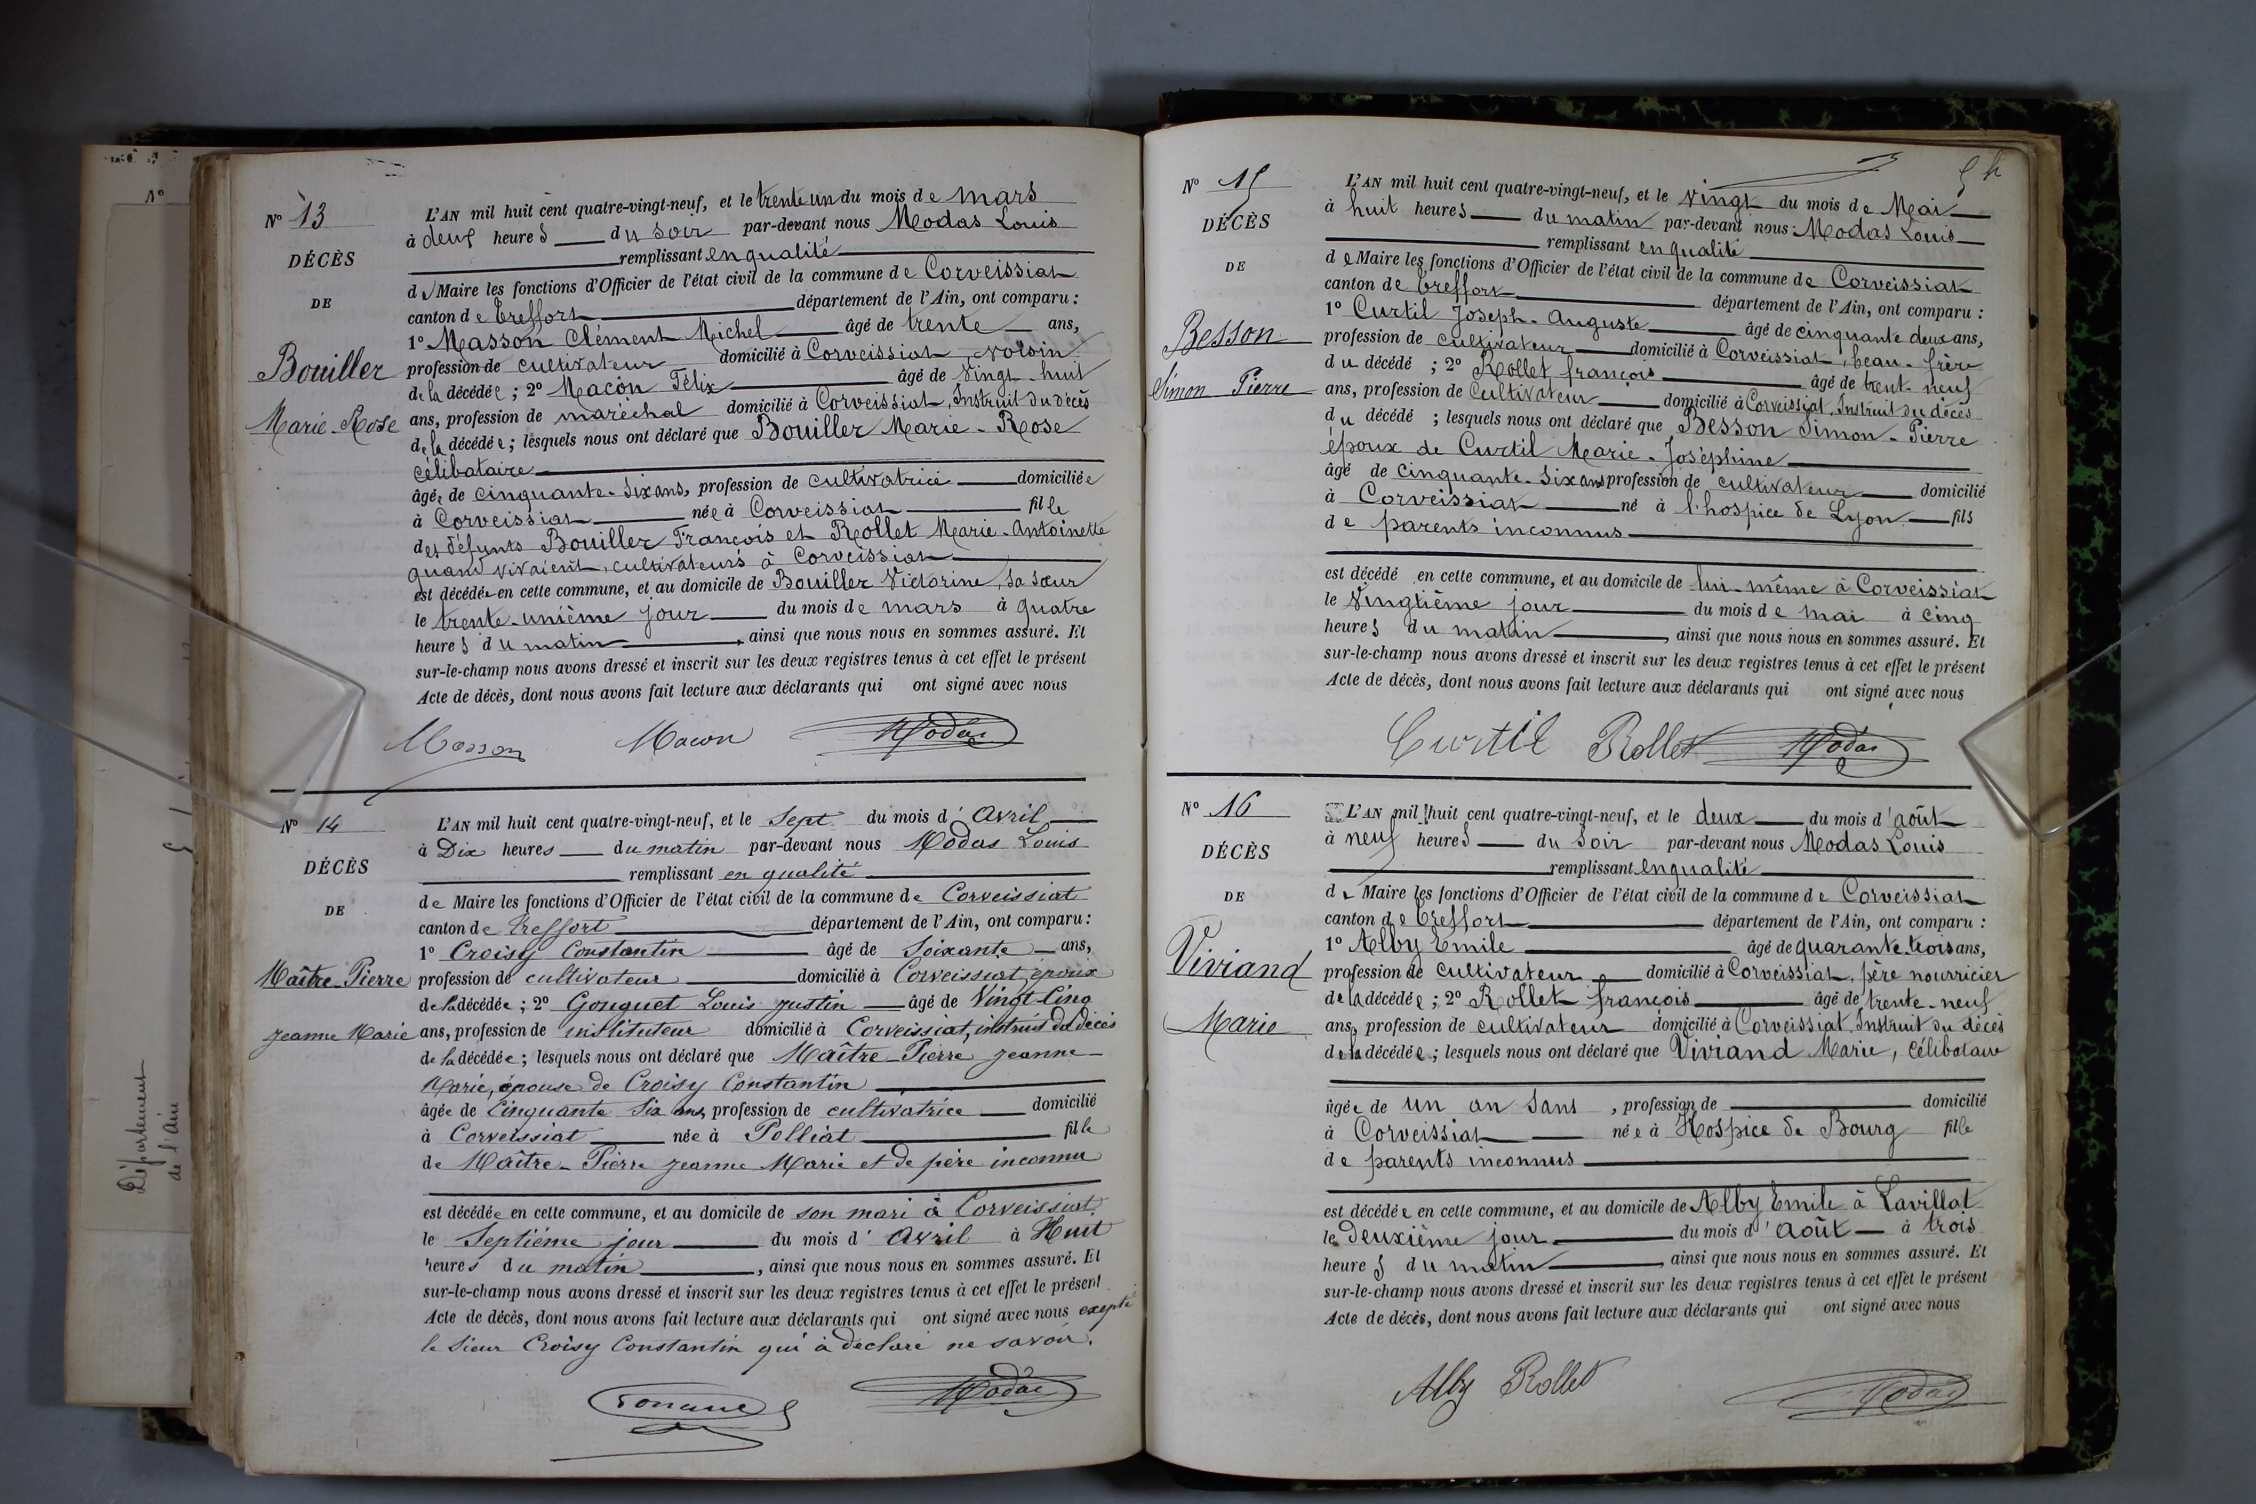 Nº 13
DÉCÈS
DE
Bouiller
Marie-Rose
L'AN mil huit cent quatre-vingt-neuf, et le trente un du mois de mars
à deux heures du soir par-devant nous Modas Louis
remplissant en qualité
de Maire les fonctions d'Officier de l'état civil de la commune de Corveissiat
canton de Treffort département de l'Ain, ont comparu :
1º Masson Clément Michel âgé de trente ans,
profession de cultivateur domicilié à Corveissiat, voisin
de la décédée ; 2º Macon Félix âgé de vingt-huit
ans, profession de maréchal domicilié à Corveissiat, Instruit du décès
de la décédée ; lesquels nous ont déclaré que Bouiller Marie-Rose
célibataire
âgée de cinquante-six ans, profession de cultivatrice domiciliée
à Corveissiat née à Corveissiat fille
des défunts Bouiller François et Rollet Marie-Antoinette
quand vivaient, cultivateurs à Corveissiat
est décédée en cette commune, et au domicile de Bouiller Victorine, sa sœur
le trente-unième jour du mois de mars à quatre
heures du matin, ainsi que nous nous en sommes assuré. Et
sur-le-champ nous avons dressé et inscrit sur les deux registres tenus à cet effet le présent
Acte de décès, dont nous avons fait lecture aux déclarants qui ont signé avec nous
Masson Macon Modas
Nº 14
DÉCÈS
DE
Maître-Pierre
Jeanne Marie
L'AN mil huit cent quatre-vingt-neuf, et le Sept du mois d'Avril
à Dix heures du matin par-devant nous Modas Louis
remplissant en qualité
de Maire les fonctions d'Officier de l'état civil de la commune de Corveissiat
canton de Treffort département de l'Ain, ont comparu :
1º Croisy Constantin âgé de Soixante ans,
profession de cultivateur domicilié à Corveissiat, époux
de la décédée ; 2º Gouguet Louis Justin âgé de Vingt-Cinq
ans, profession de instituteur domicilié à Corveissiat, instruit du décès
de la décédée ; lesquels nous ont déclaré que Maître-Pierre Jeanne-
Marie, épouse de Croisy Constantin
âgée de Cinquante Six ans, profession de cultivatrice domicilié
à Corveissiat née à Polliat fille
de Maître-Pierre Jeanne Marie et de père inconnu
est décédée en cette commune, et au domicile de son mari à Corveissiat
le Septième jour du mois d'Avril à Huit
heures du matin, ainsi que nous nous en sommes assuré. Et
sur-le-champ nous avons dressé et inscrit sur les deux registres tenus à cet effet le présent
Acte de décès, dont nous avons fait lecture aux déclarants qui ont signé avec nous excepté
le Sieur Croisy Constantin qui à déclaré ne savoir.
Modas
Département
de l'Ain
Nº 15
DÉCÈS
DE
Besson
Simon Pierre
L'AN mil huit cent quatre-vingt-neuf, et le vingt du mois de Mai
à huit heures du matin par-devant nous Modas Louis
remplissant en qualité
de Maire les fonctions d'Officier de l'état civil de la commune de Corveissiat
canton de Treffort département de l'Ain, ont comparu :
1º Curtil Joseph-Auguste âgé de cinquante deux ans,
profession de cultivateur domicilié à Corveissiat, beau-frère
du décédé ; 2º Rollet françois âgé de trent-neuf
ans, profession de Cultivateur domicilié à Corveissiat, Instruit du décès
du décédé ; lesquels nous ont déclaré que Besson Simon-Pierre
époux de Curtil Marie-Joséphine
âgé de cinquante-six ans profession de cultivateur domicilié
à Corveissiat né à l'hospice de Lyon fils
de parents inconnus
est décédé en cette commune, et au domicile de lui-même à Corveissiat
le Vingtième jour du mois de mai à cinq
heures du matin, ainsi que nous nous en sommes assuré. Et
sur-le-champ nous avons dressé et inscrit sur les deux registres tenus à cet effet le présent
Acte de décès, dont nous avons fait lecture aux déclarants qui ont signé avec nous
Curtil Rollet Modas
Nº 16
DÉCÈS
DE
Viviand
Marie
L'AN mil huit cent quatre-vingt-neuf, et le deux du mois d'août
à neuf heures du soir par-devant nous Modas Louis
remplissant en qualité
de Maire les fonctions d'Officier de l'état civil de la commune de Corveissiat
canton de Treffort département de l'Ain, ont comparu :
1º Alby Emile âgé de quarante-trois ans,
profession de cultivateur domicilié à Corveissiat, père nourricier
de la décédée ; 2º Rollet françois âgé de trente-neuf
ans, profession de cultivateur domicilié à Corveissiat, Instruit du décès
de la décédée ; lesquels nous ont déclaré que Viviand Marie, célibataire
âgée de un an sans, profession de domicilié
à Corveissiat née à Hospice de Bourg fille
de parents inconnus
est décédée en cette commune, et au domicile de Alby Emile à Lavillat
le deuxième jour du mois d'août à trois
heures du matin, ainsi que nous nous en sommes assuré. Et
sur-le-champ nous avons dressé et inscrit sur les deux registres tenus à cet effet le présent
Acte de décès, dont nous avons fait lecture aux déclarants qui ont signé avec nous
Alby Rollet Modas